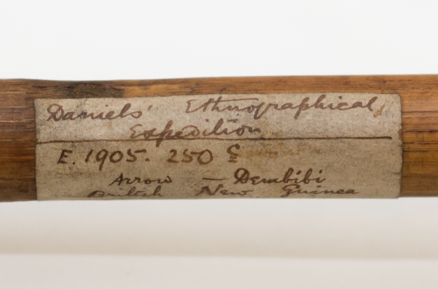 Daniels' Ethnographical
Expedition
E. 1905. 250 c
Arrow — Derabibi
British New Guinea